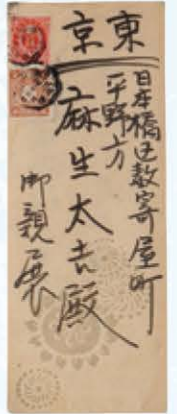 東京
日本橋区数寄屋町
平野方
麻生太吉殿
御親展